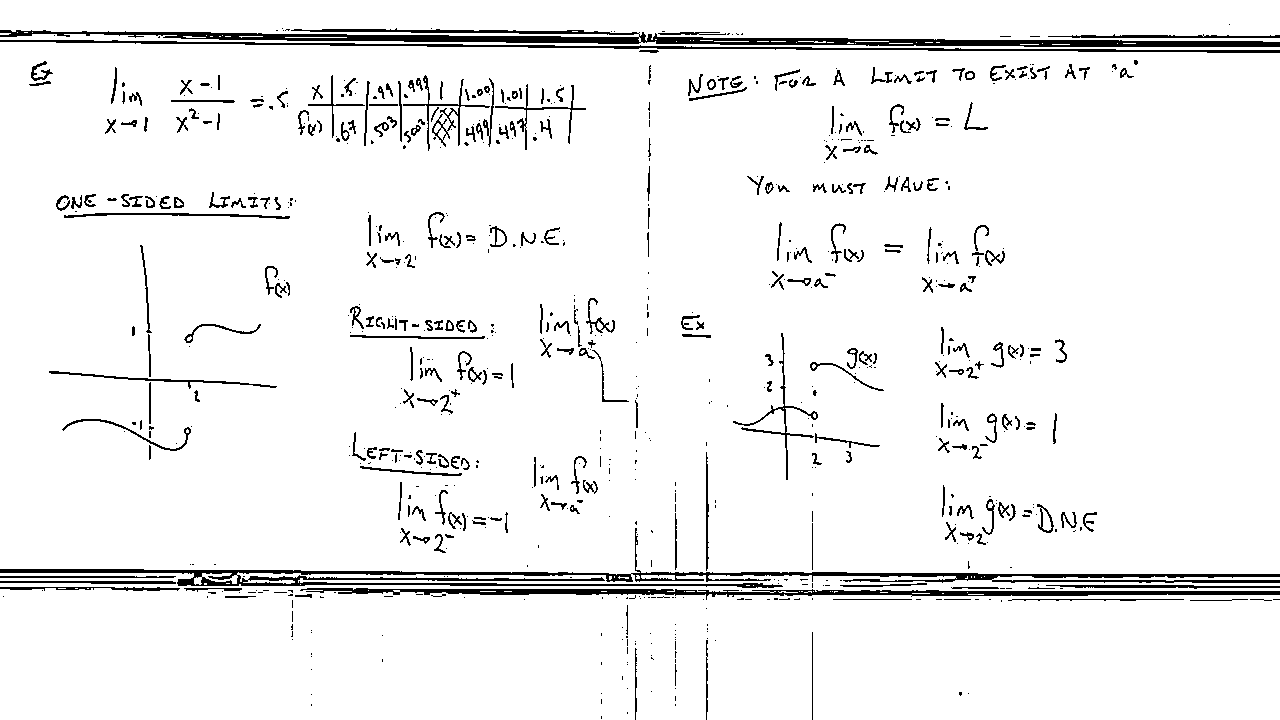 Ex
lim x→1 (x-1)/(x²-1) = .5
x | .5 | .99 | .999 | 1 | 1.00 | 1.01 | 1.5
f(x) | .67 | .503 | .5002 | | .499 | .497 | .4
ONE-SIDED LIMITS:
lim x→2 f(x) = D.N.E.
f(x)
1
2
-1
RIGHT-SIDED:
lim x→a⁺ f(x)
lim x→2⁺ f(x) = 1
LEFT-SIDED:
lim x→a⁻ f(x)
lim x→2⁻ f(x) = -1
NOTE: FOR A LIMIT TO EXIST AT "a"
lim x→a f(x) = L
YOU MUST HAVE:
lim x→a⁻ f(x) = lim x→a⁺ f(x)
Ex
g(x)
3
2
1
2 3
lim x→2⁺ g(x) = 3
lim x→2⁻ g(x) = 1
lim x→2 g(x) = D.N.E